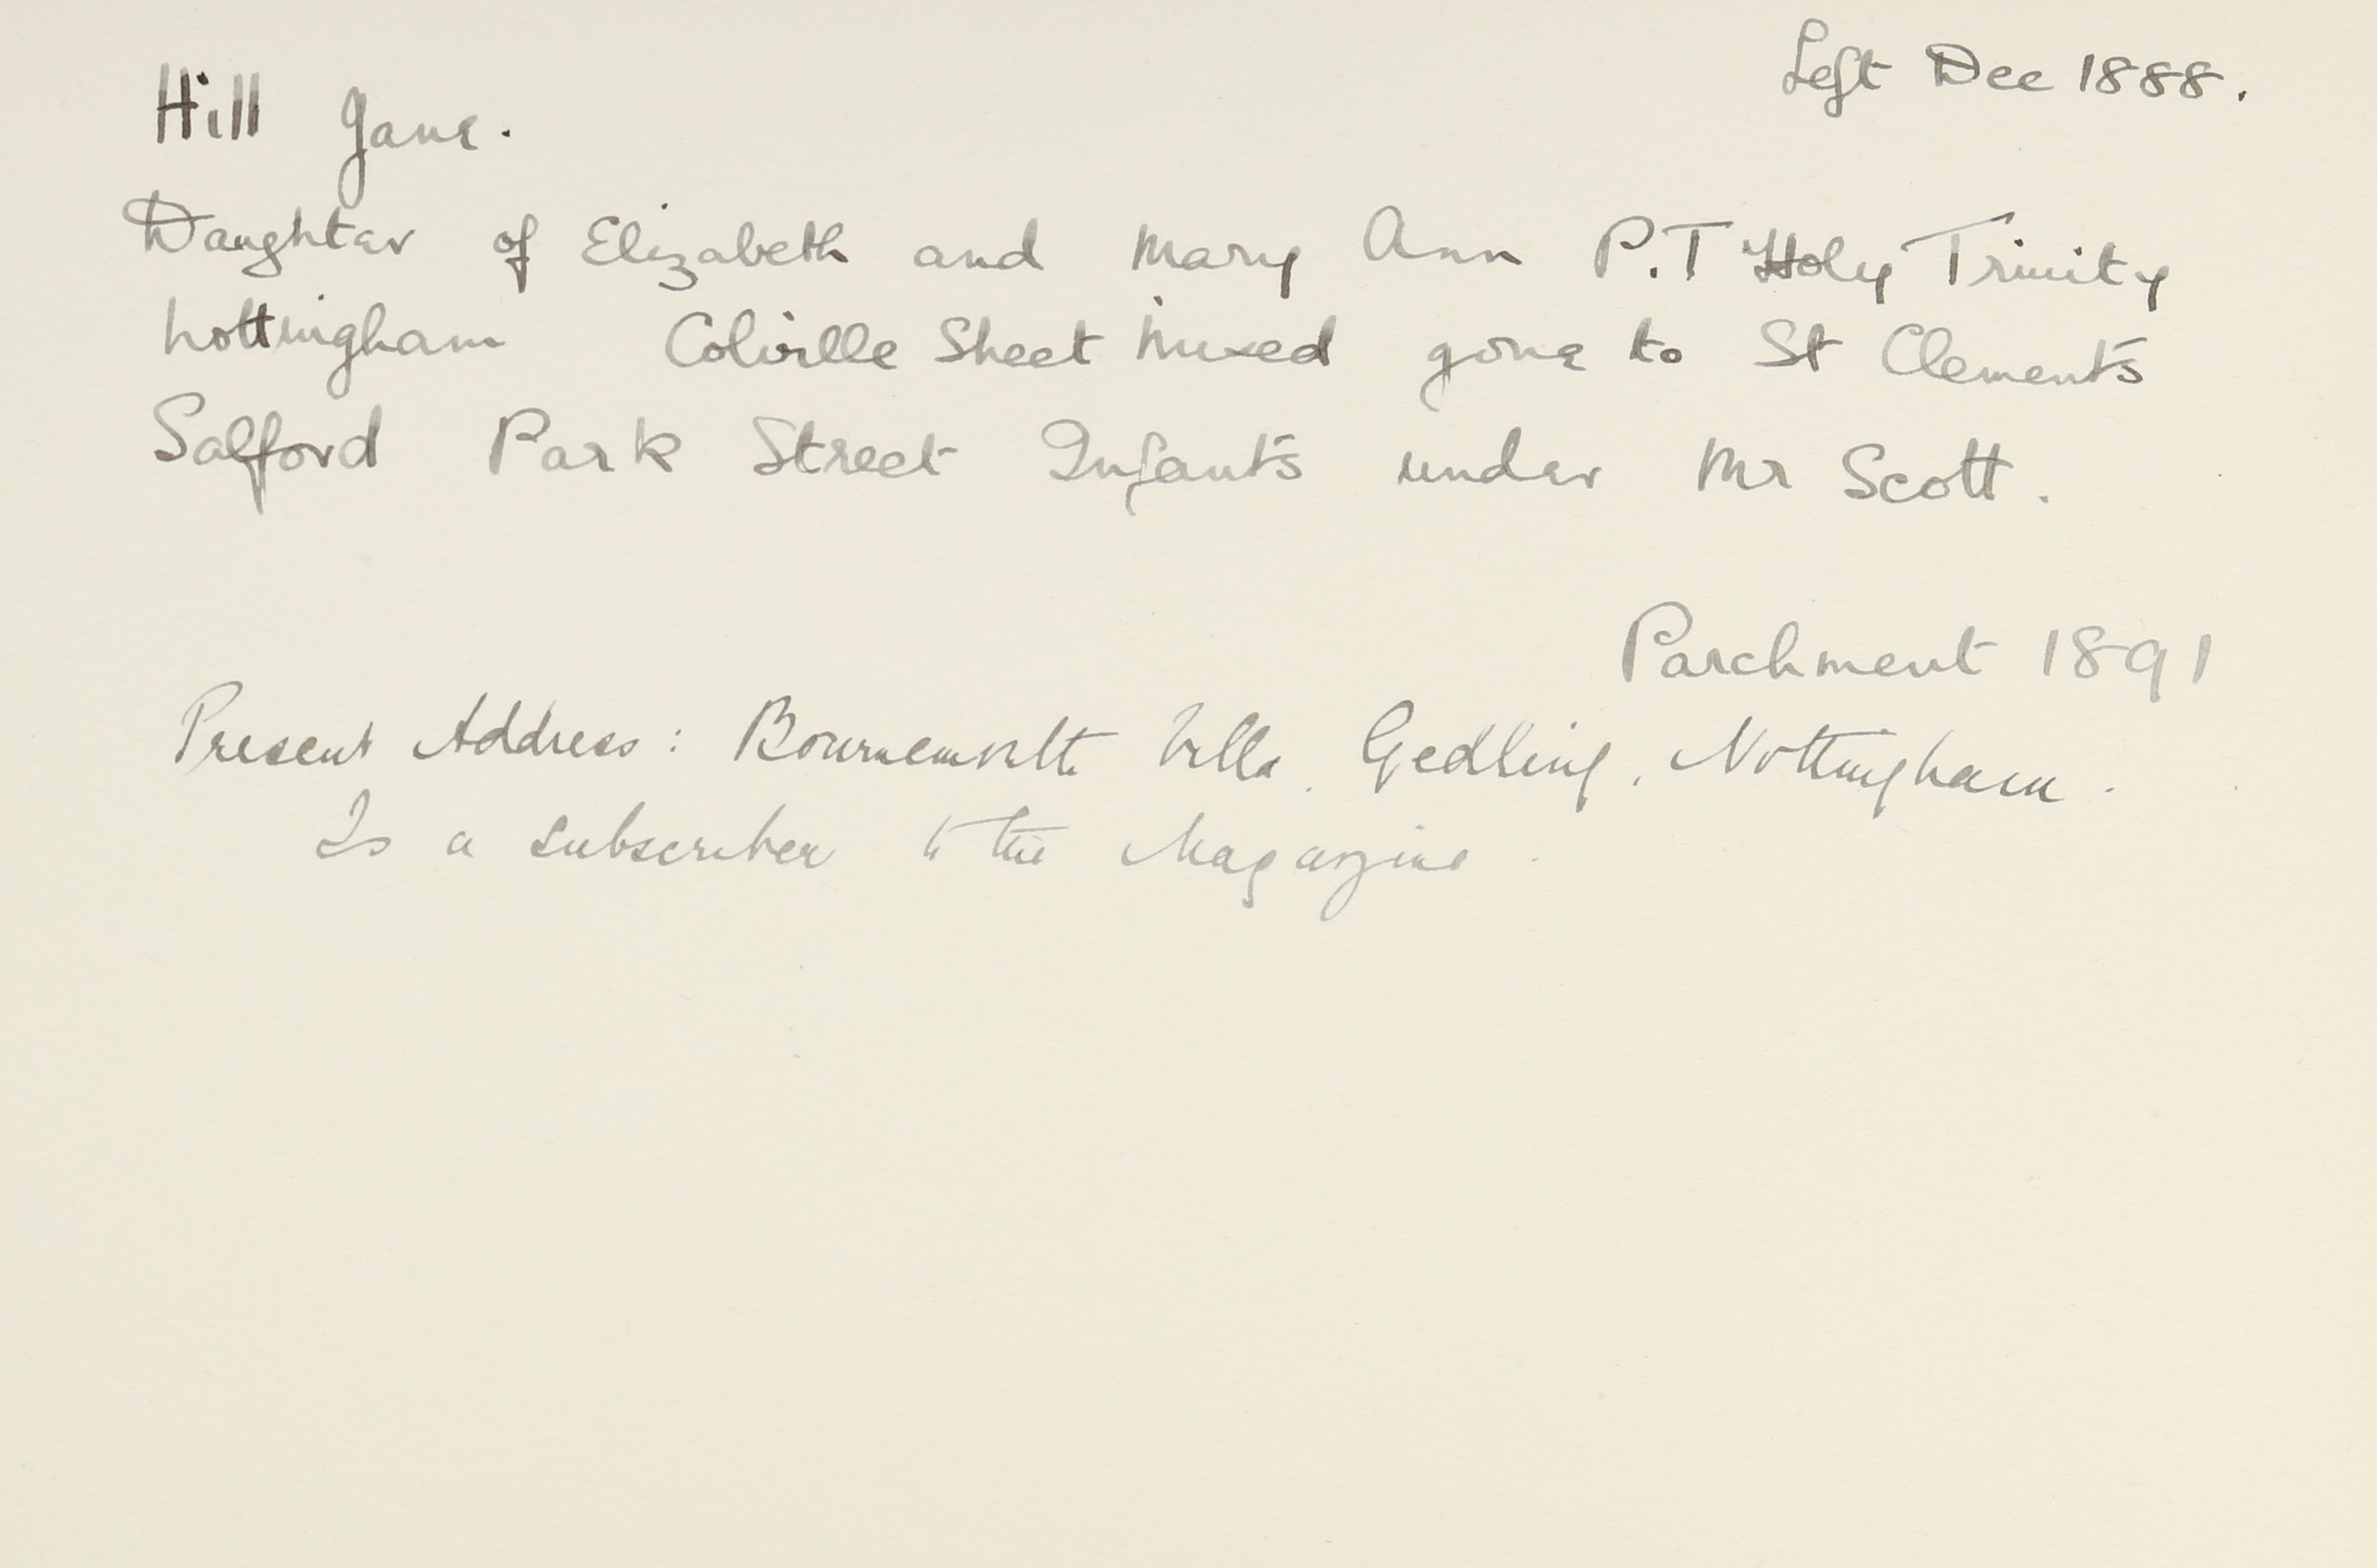 Left Dec 1888.
Hill Jane.
Daughter of Elizabeth and Mary Ann P.T Holy Trinity
Nottingham Colville Street Mixed gone to St Clements
Salford Park Street Infants under Mr Scott.
Parchment 1891
Present Address: Bournemouth Villa, Gedling, Nottingham.
Is a subscriber to the Magazine.